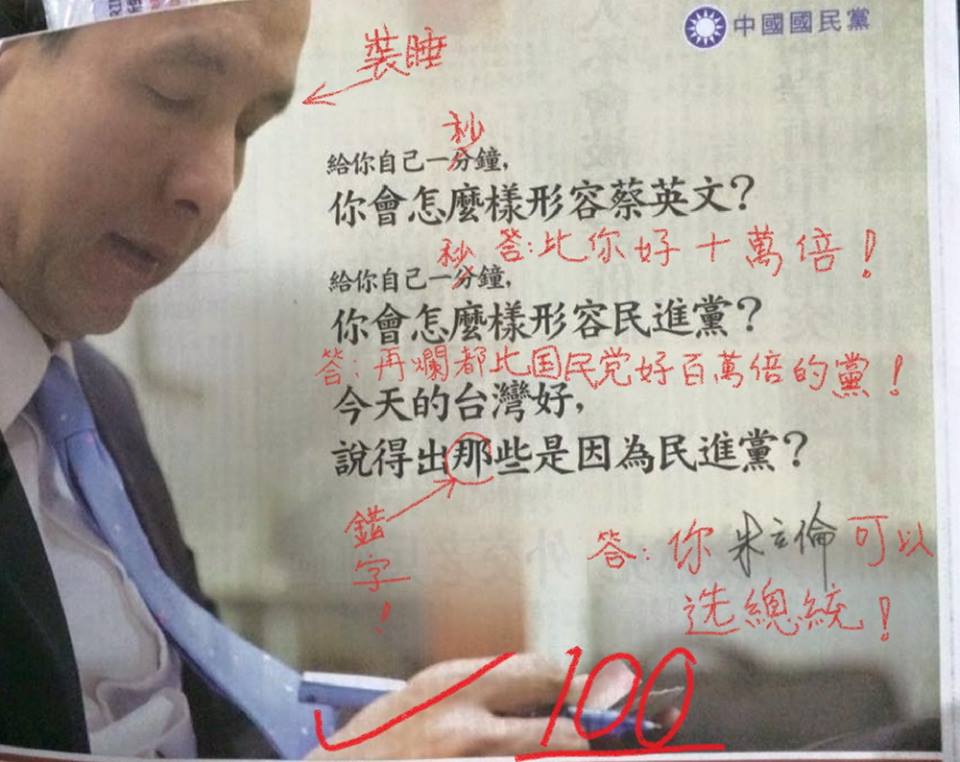 中國國民黨
裝睡
秒
給你自己一分鐘，
你會怎麼樣形容蔡英文？
答：比你好十萬倍！
秒
給你自己一分鐘，
你會怎麼樣形容民進黨？
答：再爛都比国民党好百萬倍的黨！
今天的台灣好，
說得出那些是因為民進黨？
錯字！
答：你朱立倫可以
选總統！
100